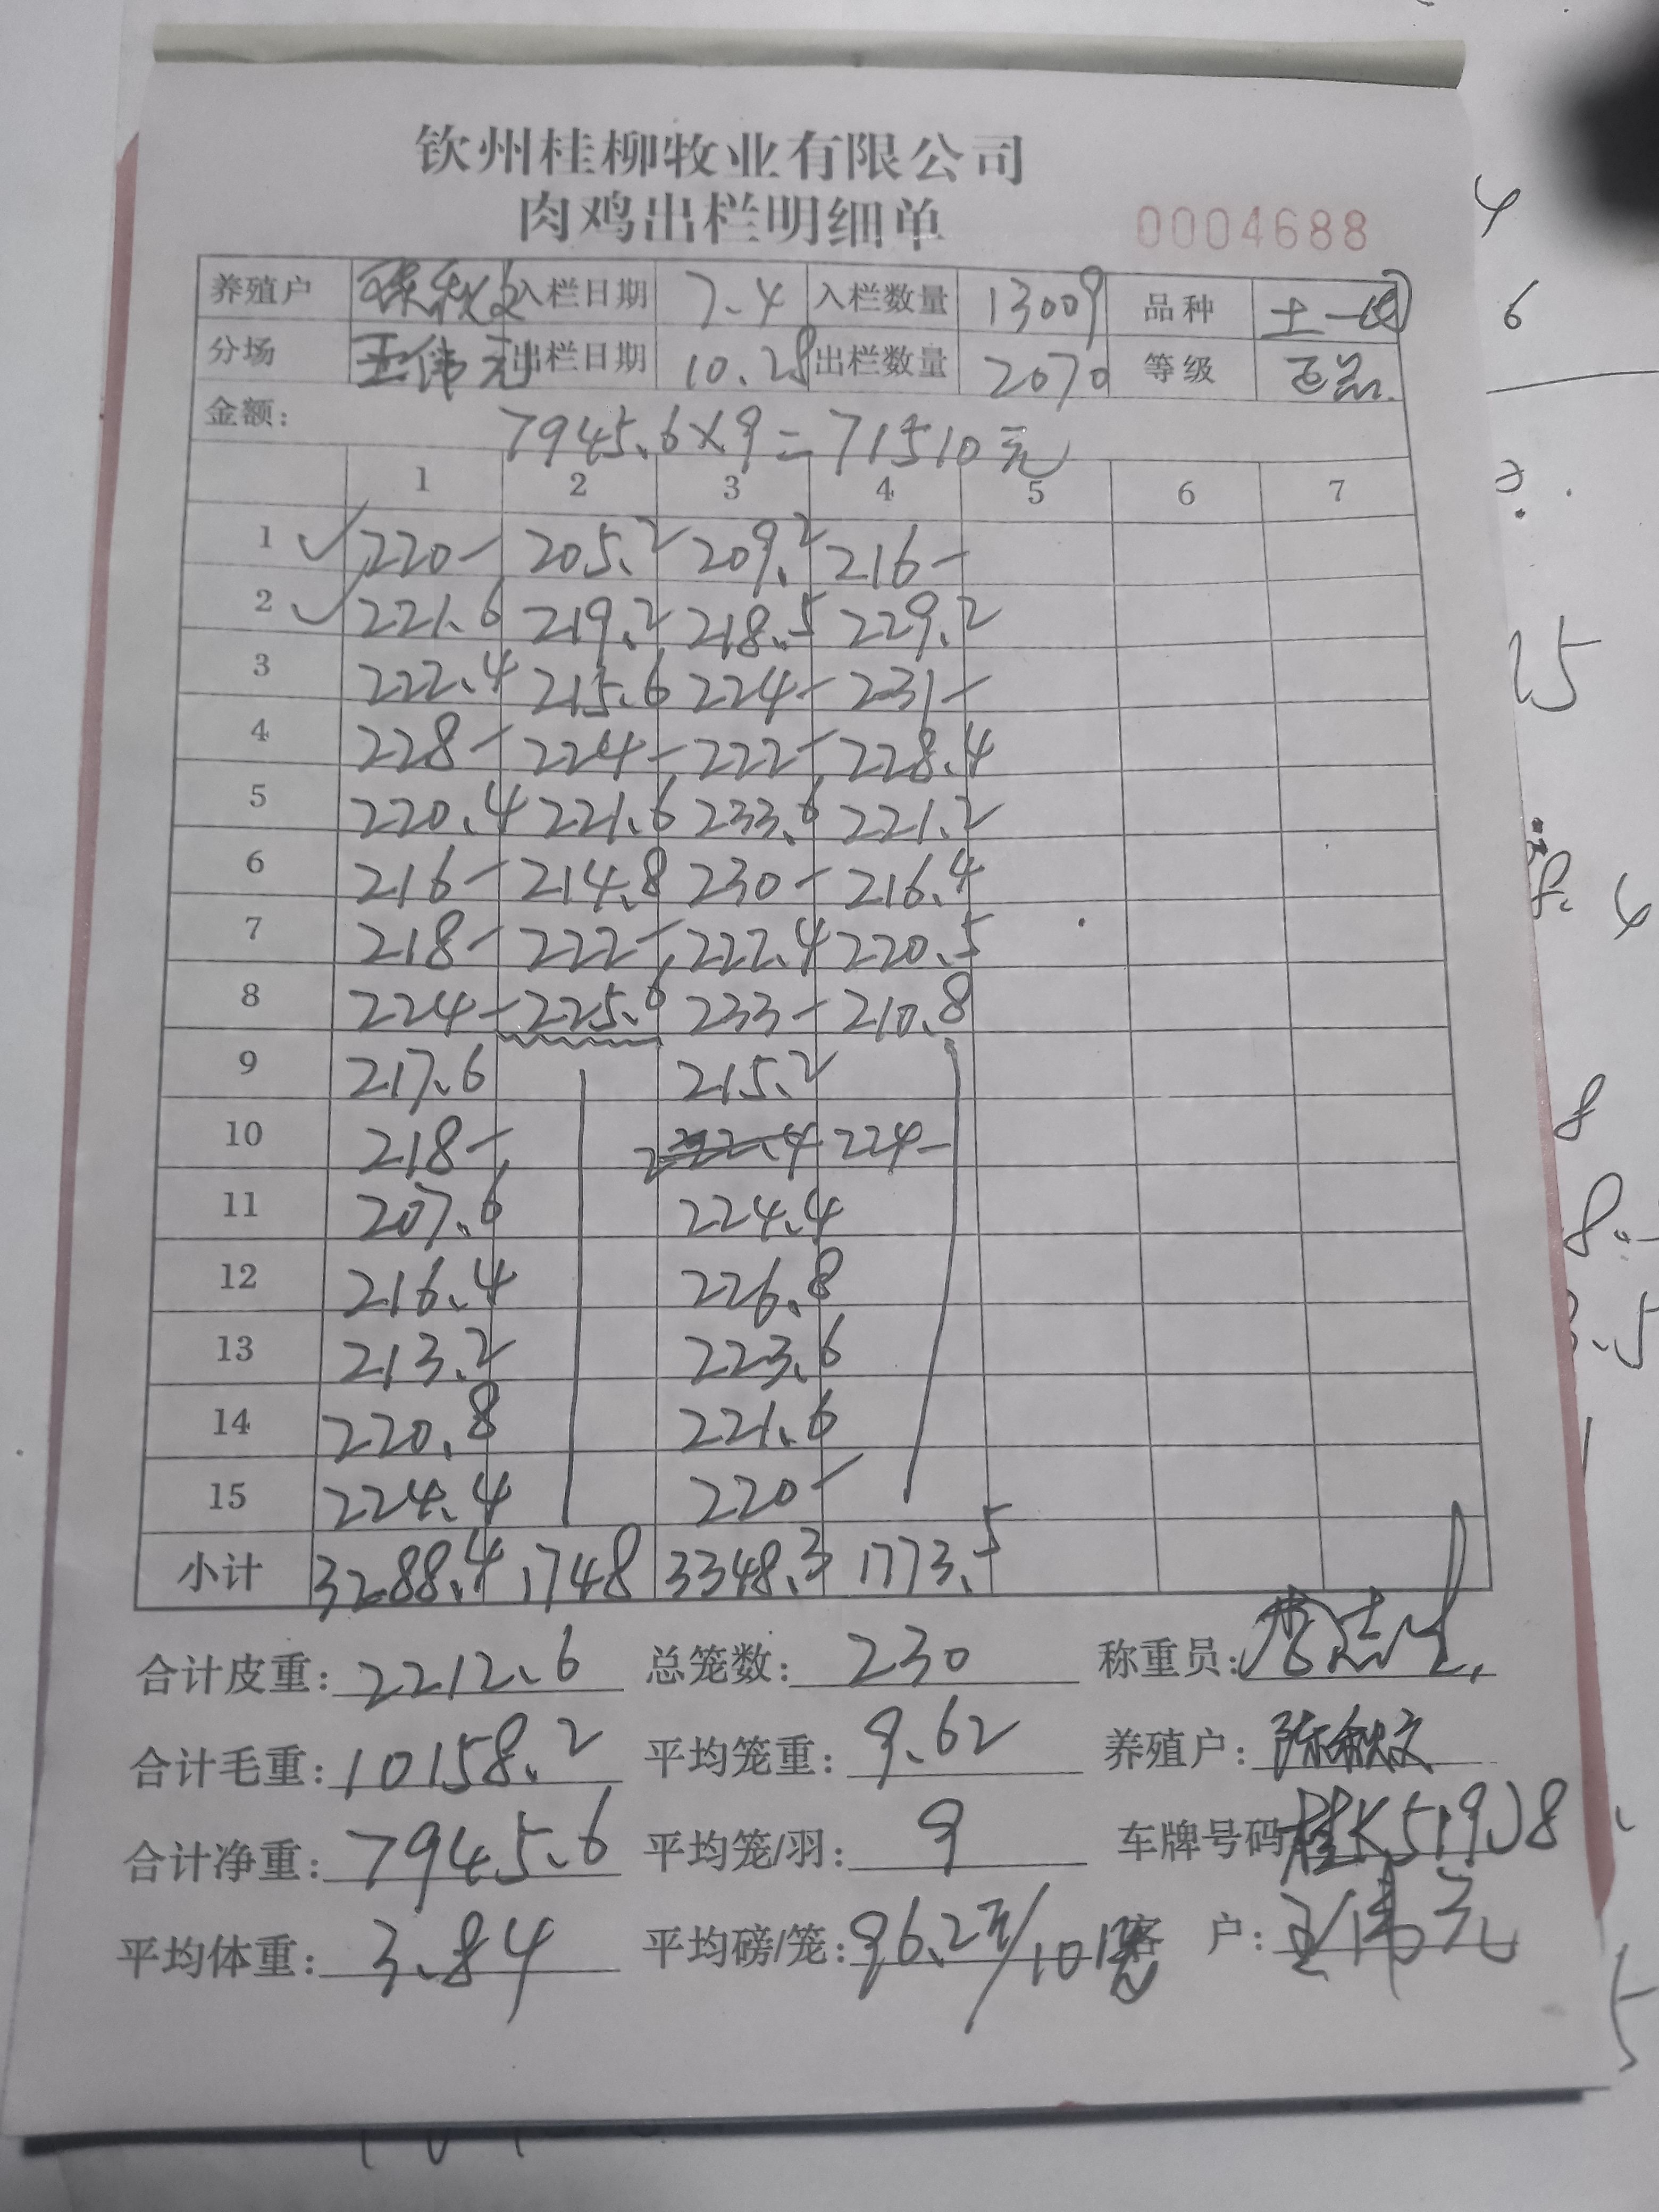 钦州桂柳牧业有限公司
肉鸡出栏明细单 0004688
养殖户 陈秋文 入栏日期 7.4 入栏数量 13009 品种 土一
分场 王伟元 出栏日期 10.28 出栏数量 2070 等级 正品
金额: 7945.6×9=71510元
1 2 3 4 5 6 7
1 ✓ 220- 205.2 209.2 216-
2 ✓ 221.6 219.2 218.5 229.2
3 222.4 215.6 224- 231-
4 228- 224- 222- 228.4
5 220.4 221.6 233.6 221.2
6 216- 214.8 230- 216.4
7 218- 222- 222.4 220.5
8 224- 225.6 233- 210.8
9 217.6 215.2
10 218- 224-
11 207.6 224.4
12 216.4 226.8
13 213.2 223.6
14 220.8 221.6
15 224.4 220-
小计 3288.4 1748 3348.3 1773.5
合计皮重: 2212.6 总笼数: 230 称重员:
合计毛重: 10158.2 平均笼重: 9.62 养殖户: 陈秋文
合计净重: 7945.6 平均笼/羽: 9 车牌号码 桂K51908
平均体重: 3.84 平均磅/笼: 96.2斤/10笼 客 户: 王伟元
4
6
25
8. 4
8
8.
.5